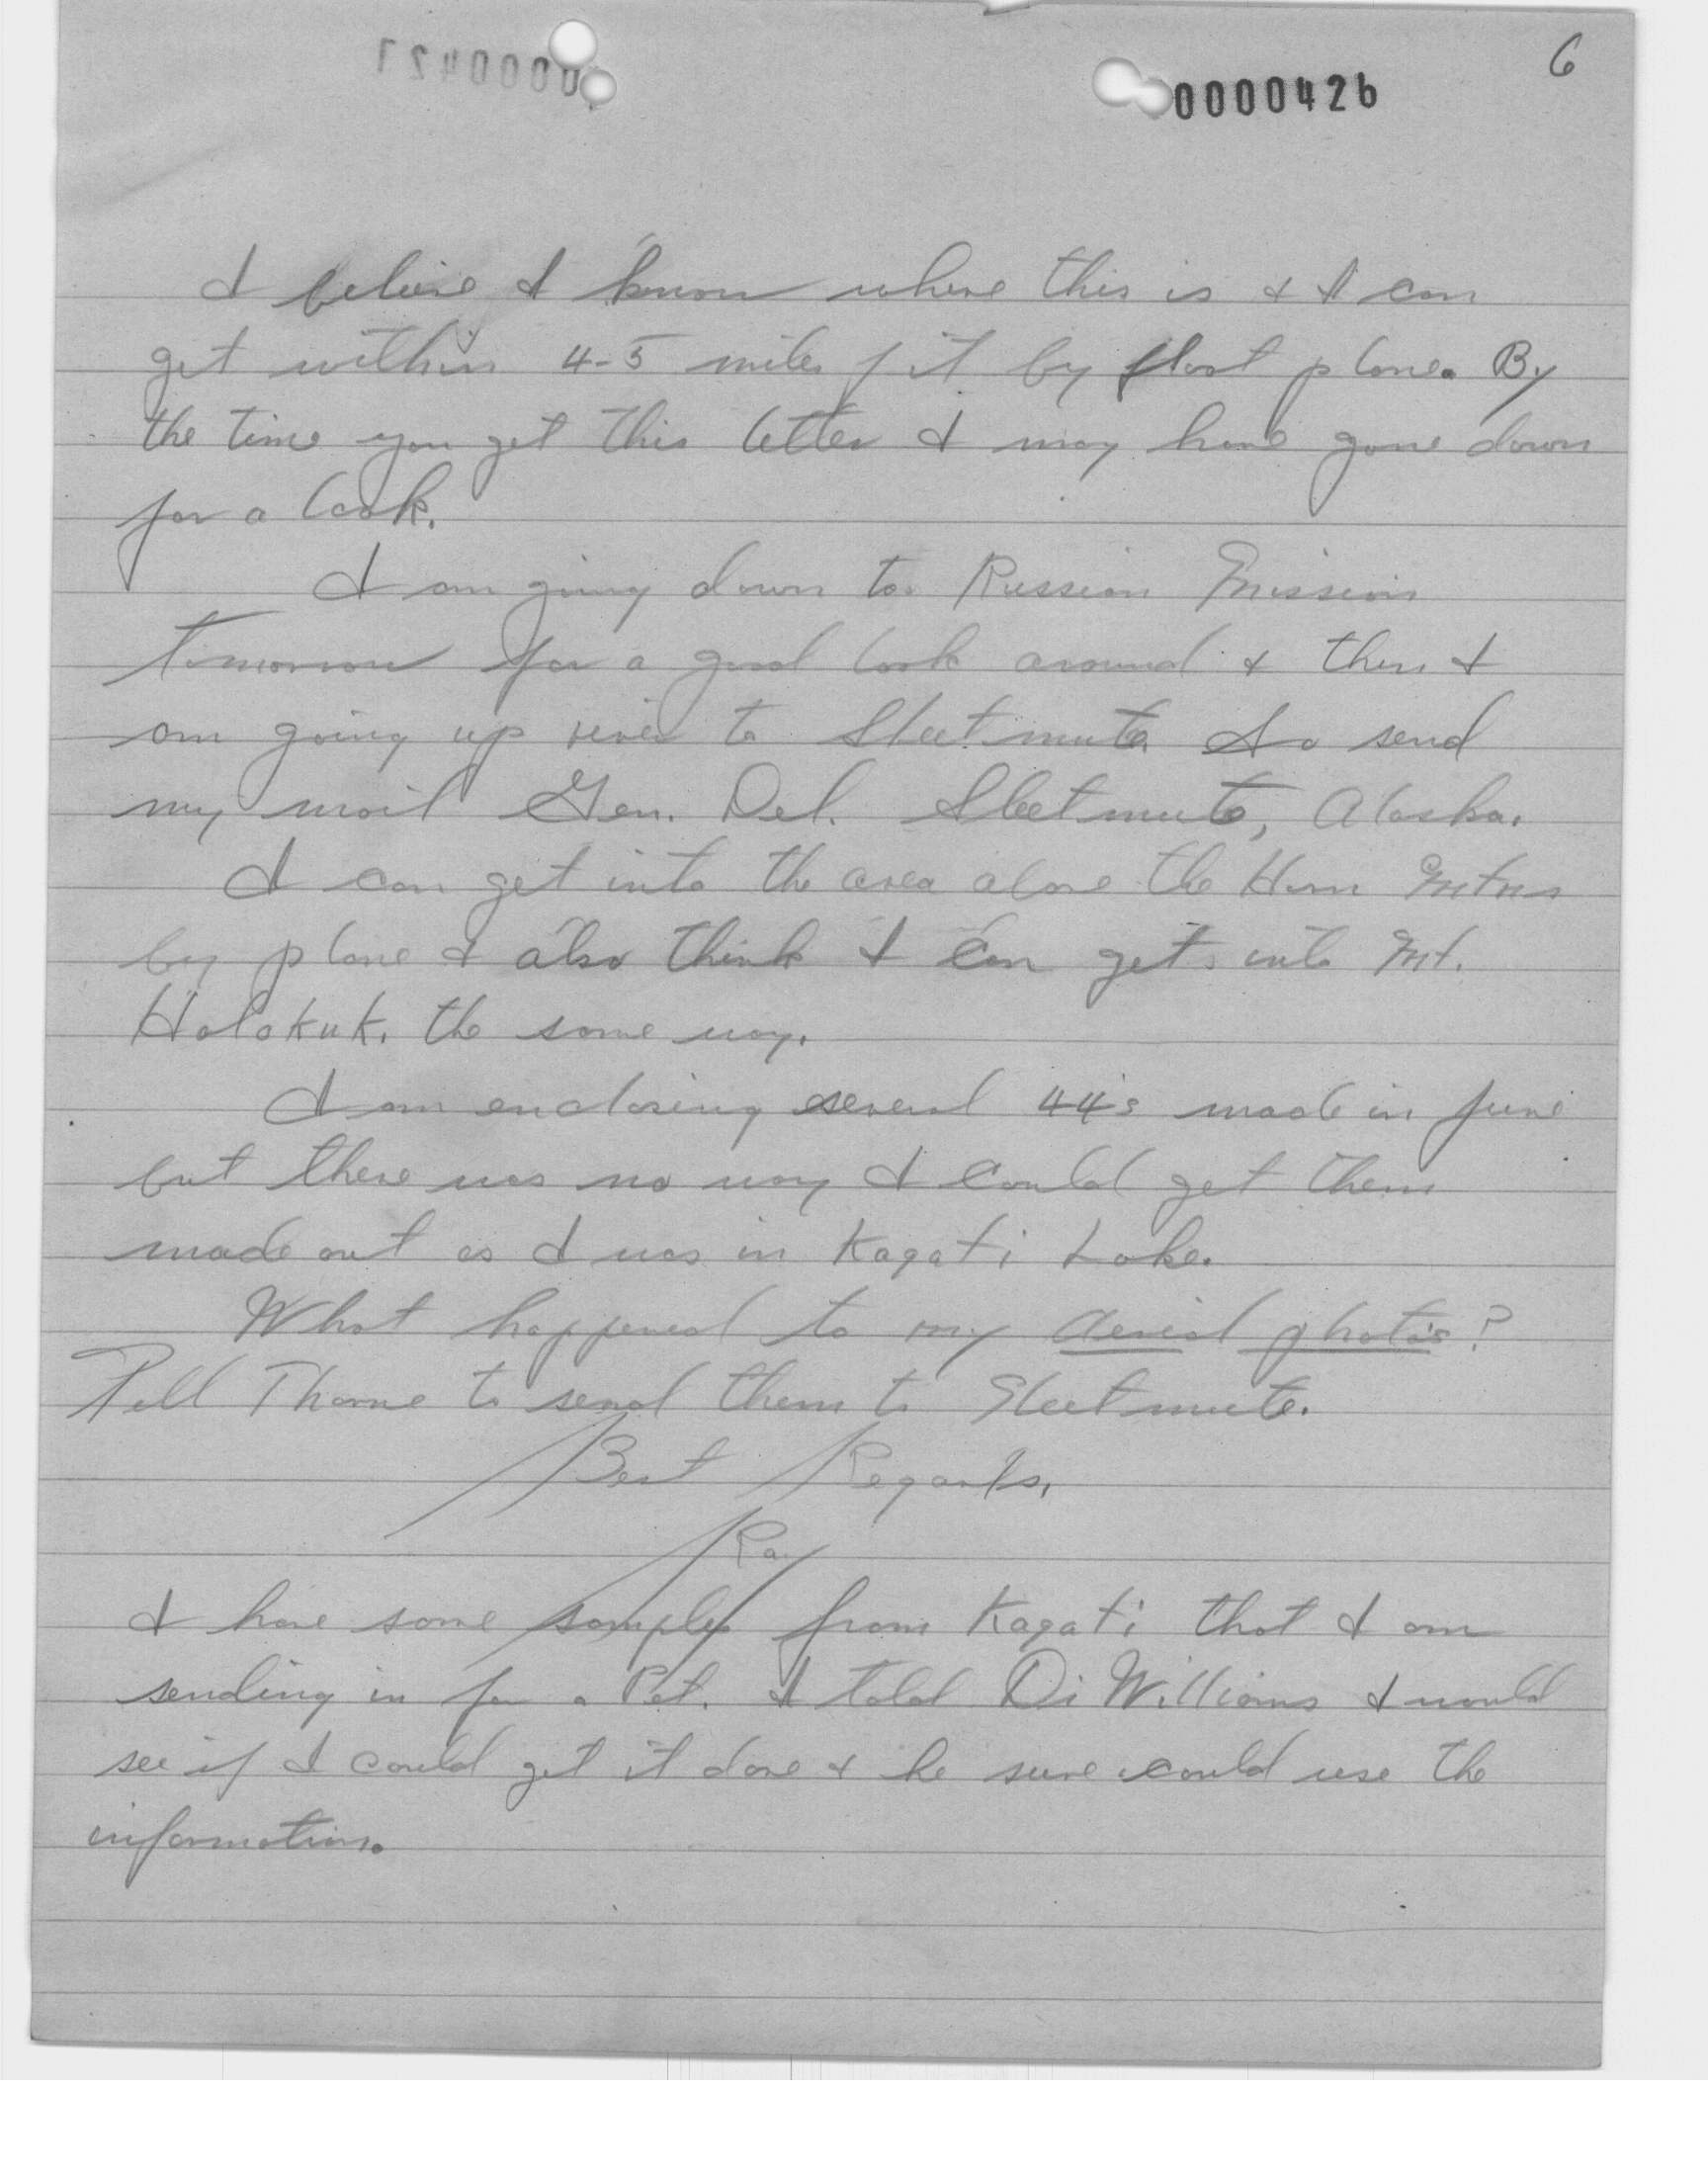 6
0000426
I believe I know where this is & I can
get within 4-5 miles of it by float plane. By
the time you get this letter I may have gone down
for a look.
I am going down to Russian Mission
tomorrow for a good look around & then I
am going up river to Sleetmute. So send
my mail Gen. Del. Sleetmute, Alaska.
I can get into the area above the Horn Mtns
by plane & also think I can get into Mt.
Holokuk. the same way.
I am enclosing several 44's made in June
but there was no way I could get them
made out as I was in Kagati Lake.
What happened to my aerial photo's?
Tell Thorne to send them to Sleetmute.
Best Regards,
Ray
I have some samples from Kagati that I am
sending in for a Pet. I told Di Williams I would
see if I could get it done & he sure could use the
information.